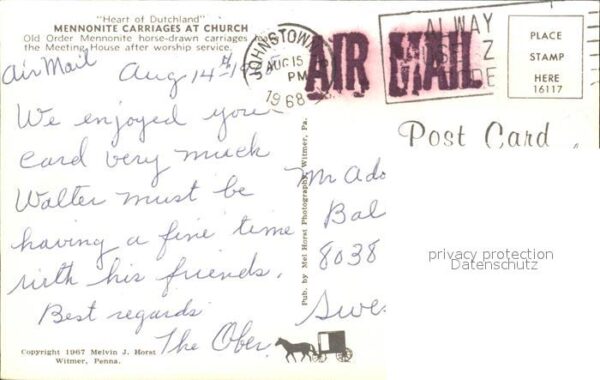 "Heart of Dutchland"
MENNONITE CARRIAGES AT CHURCH
Old Order Mennonite horse-drawn carriages
the Meeting House after worship service.
Air Mail
Aug 14th
We enjoyed your
Card very much
Walter must be
having a fine time
with his friends.
Best regards
The Ober
Copyright 1967 Melvin J. Horst
Witmer, Penna.
Pub. by Mel Horst Photography, Witmer, Pa.
JOHNSTOWN
AUG 15
PM
1968
AIR MAIL
ALWAY
USE Z
DE
PLACE
STAMP
HERE
16117
Post Card
Mr Ado
Bal
8038
Swe
privacy protection
Datenschutz